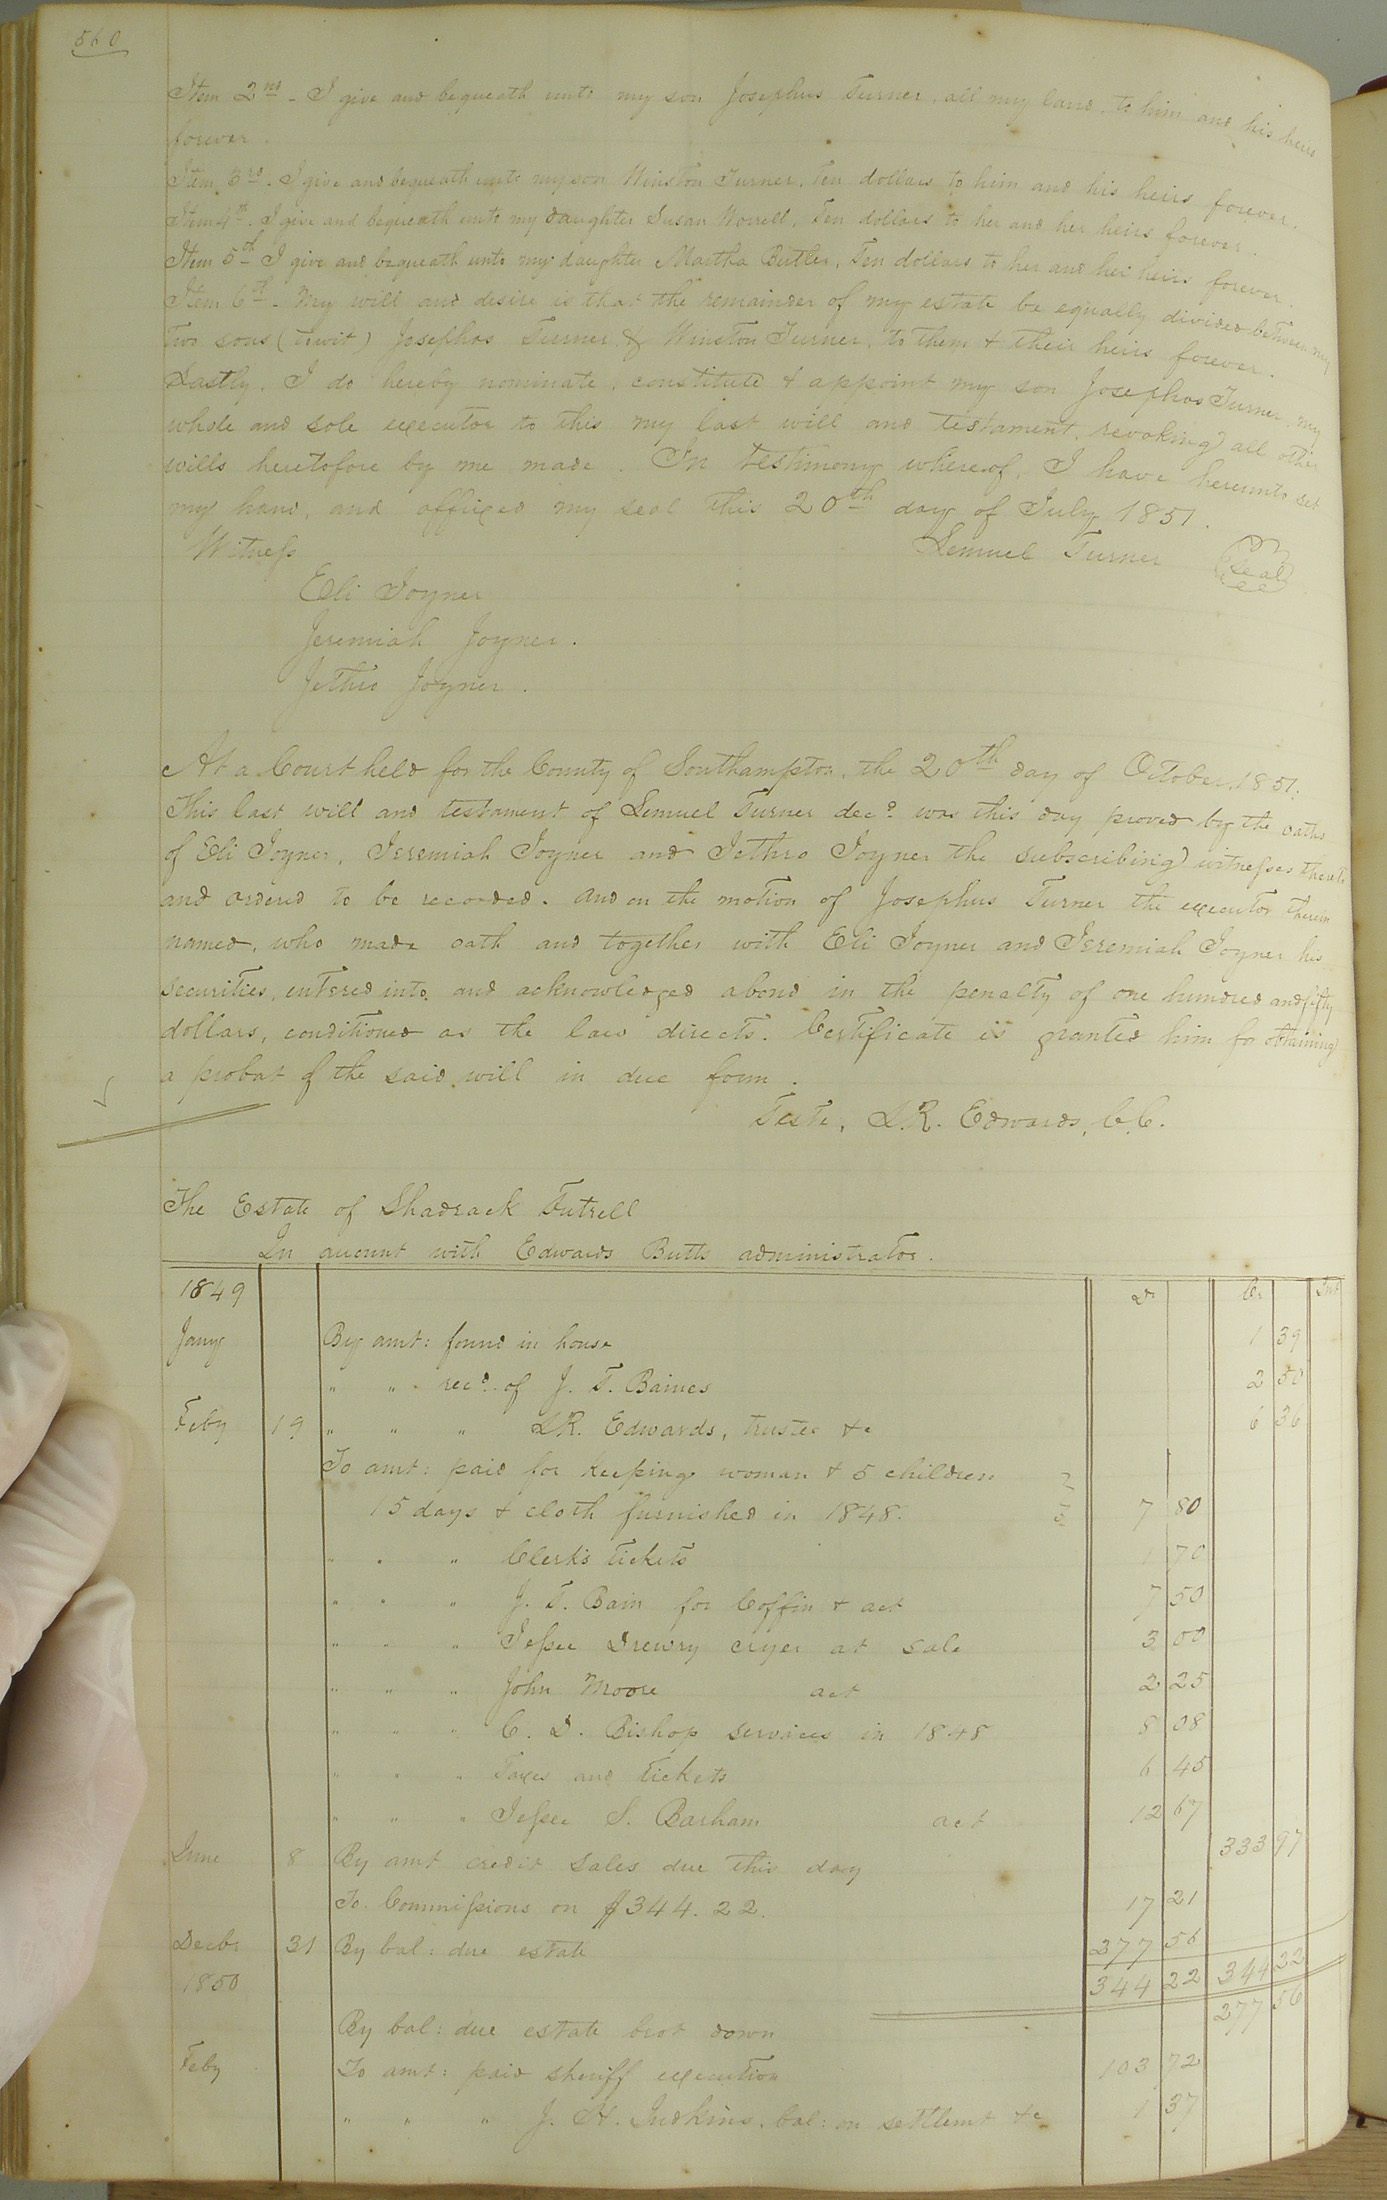 560
Item 2nd - I give and bequeath unto my son Josephus Turner, all my land, to him and his heirs
forever.
Item 3rd. I give and bequeath unto my son Winston Turner, ten dollars to him and his heirs forever.
Item 4th. I give and bequeath unto my daughter Susan Worrell, Ten dollars to her and her heirs forever
Item 5th I give and bequeath unto my daughter Martha Butler, Ten dollars to her and her heirs forever.
Item 6th. My will and desire is that the remainder of my estate be equally divided between my
two sons (towit) Josephus Turner, & Winston Turner, to them & their heirs forever.
Lastly, I do hereby nominate, constitute & appoint my son Josephus Turner, my
whole and sole executor to this my last will and testament, revoking all other
wills heretofore by me made. In testimony whereof, I have hereunto set
my hand, and affixed my seal this 20th day of July 1851.
Witness Lemuel Turner (Seal)
Eli Joyner
Jeremiah Joyner.
Jethro Joyner.
At a Court held for the County of Southampton, the 20th day of October, 1851.
This last will and testament of Lemuel Turner decd. was this day proved by the oaths
of Eli Joyner, Jeremiah Joyner and Jethro Joyner the subscribing witnesses thereto
and ordered to be recorded. And on the motion of Josephus Turner the executor therein
named, who made oath and together with Eli Joyner and Jeremiah Joyner his
securities, entered into and acknowledged a bond in the penalty of one hundred and fifty
dollars, conditioned as the law directs. Certificate is granted him for obtaining
a probat of the said will in due form.
Teste, L.R. Edwards, C.C.
The Estate of Shadrack Futrell
In account with Edwards Butts administrator.
1849 Dr Cr Int
Jany By amt: found in house 1 39
" " recd. of J. T. Baines 2 50
Feby 19 " " " L.R. Edwards, trustee &c 6 36
To amt: paid for keeping woman & 5 children
15 days & cloth furnished in 1848. 7 80
" " " Clerk's tickets 1 70
" " " J. T. Bain for Coffin & act 7 50
" " " Jessee Drewry cryer at sale 3 00
" " " John Moore act 2 25
" " " C. D. Bishop services in 1848 8 08
" " " Taxes and tickets 6 45
" " " Jessee S. Barham act 12 67
June 8 By amt credit sales due this day 333 97
To Commissions on $344.22. 17 21
Decbr 31 By bal: due estate 277 56
1850 344 22 344 22
By bal: due estate brot down 277 56
Feby To amt: paid sheriff execution 103 72
" " " J. H. Judkins, bal: on settlemt &c 1 37